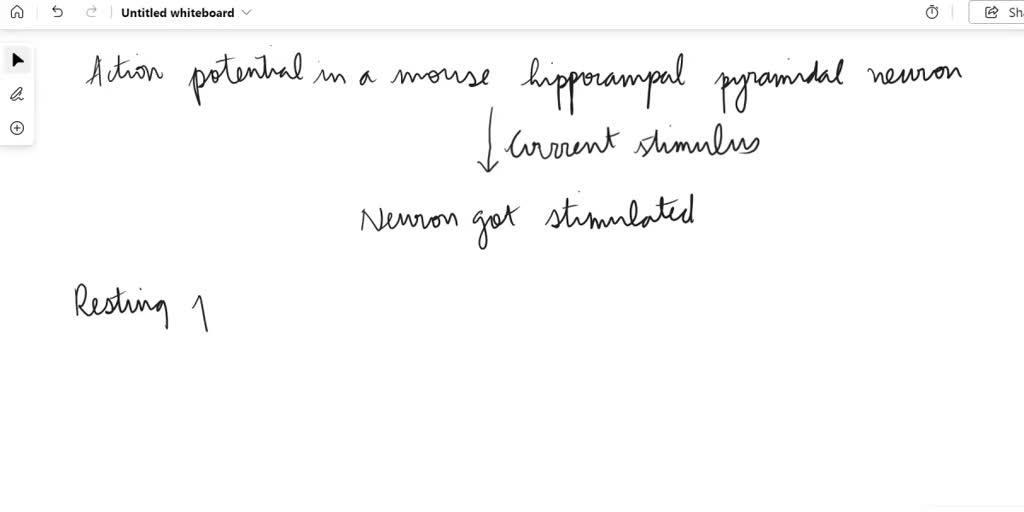 Untitled whiteboard
Sh
Action potential in a mouse hippocampal pyramidal neuron
Current stimulus
Neuron got stimulated
Resting